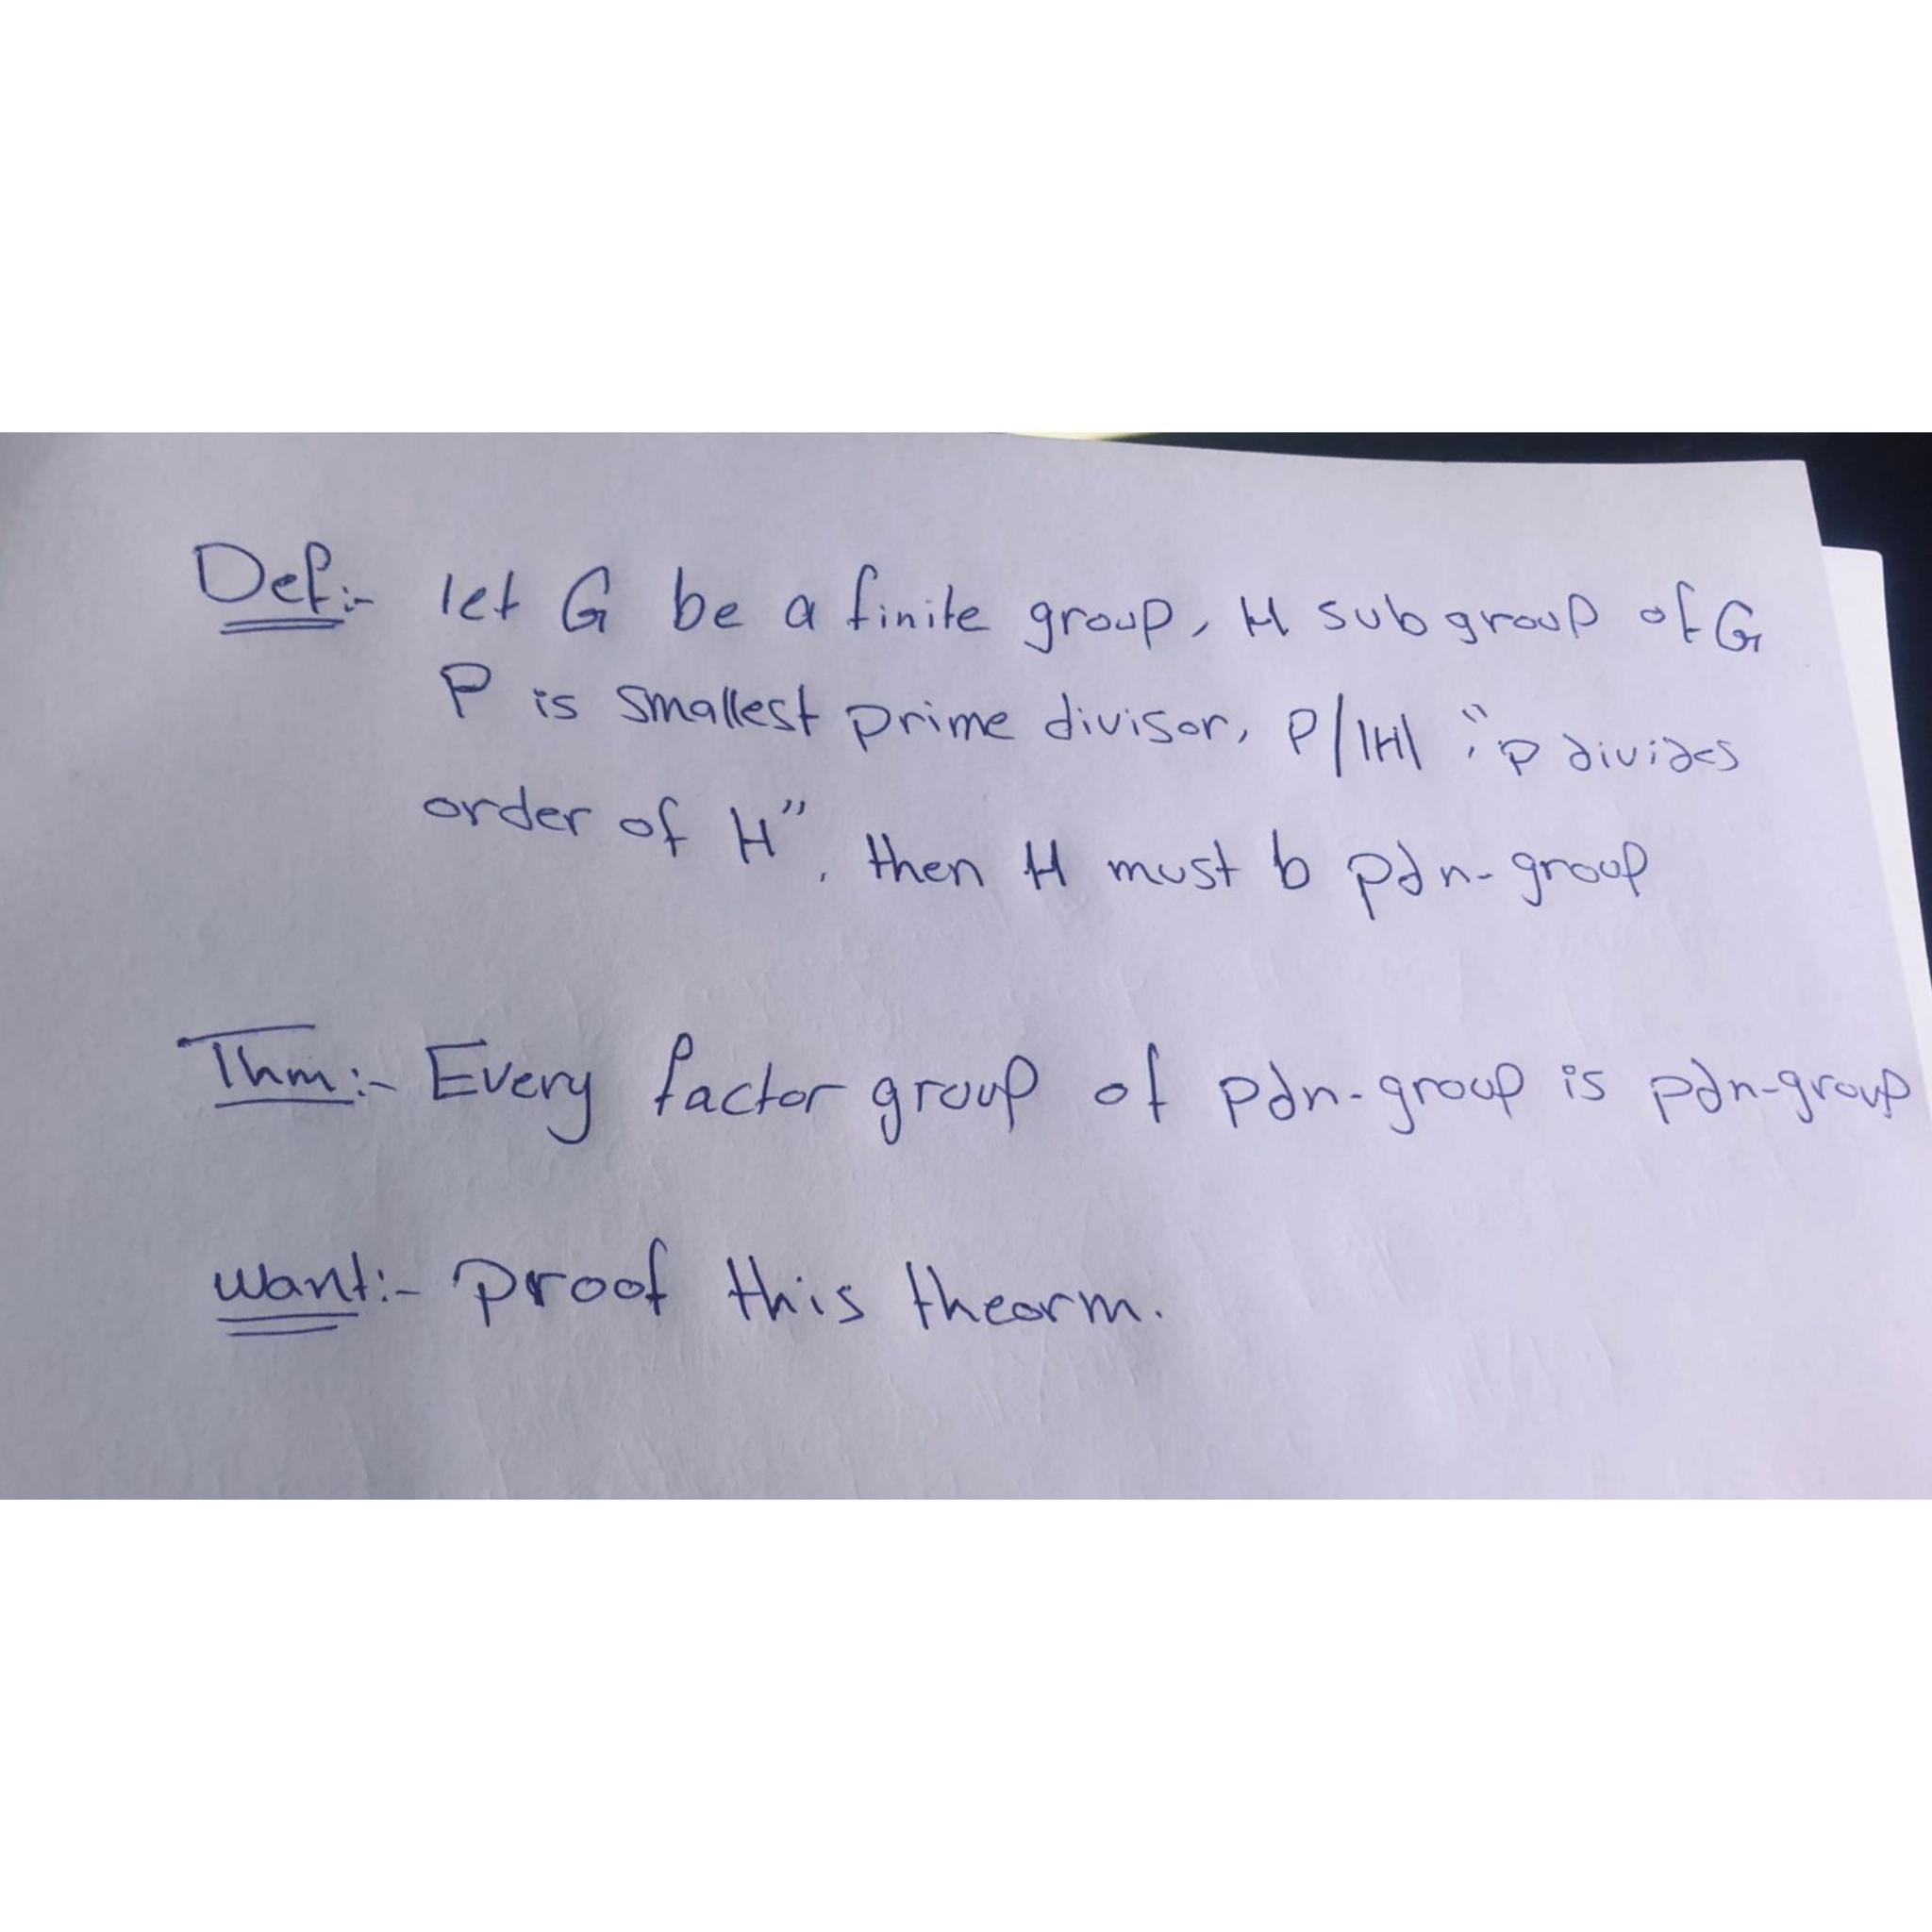 Def:- let G be a finite group, H subgroup of G
P is smallest prime divisor, P/|H| ; "p divides
order of H", then H must b pdn-group
Thm:- Every factor group of pdn-group is pdn-group
want:- proof this theorm.